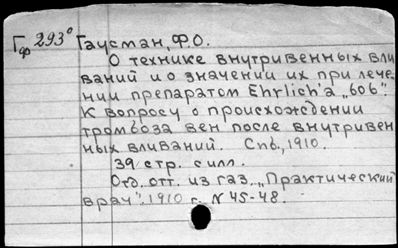 Гф 293° Гаусман, Ф.О.
О технике внутривенных вли
ваний и о значении их при лече
нии препаратом Ehrlich'a „606".
К вопросу о происхождении
тромбоза вен после внутривен
ных вливаний. Спб., 1910.
39 стр. с илл.
Отд. отт. из газ. „Практический
врач". 1910 г. N 45-48.